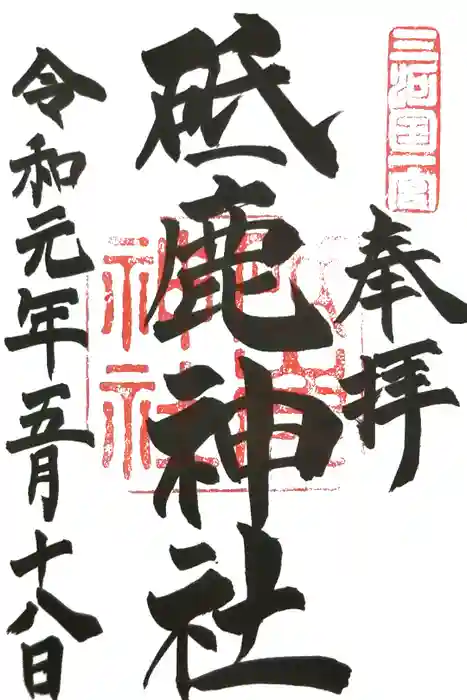 三河国一宮
奉拝
砥鹿神社
砥鹿神社
令和元年五月十八日